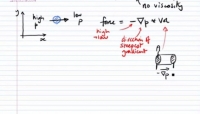 no viscosity
y
high p
low p
x
force = -∇p * Vol
high → low
direction of steepest gradient
A
-∇p